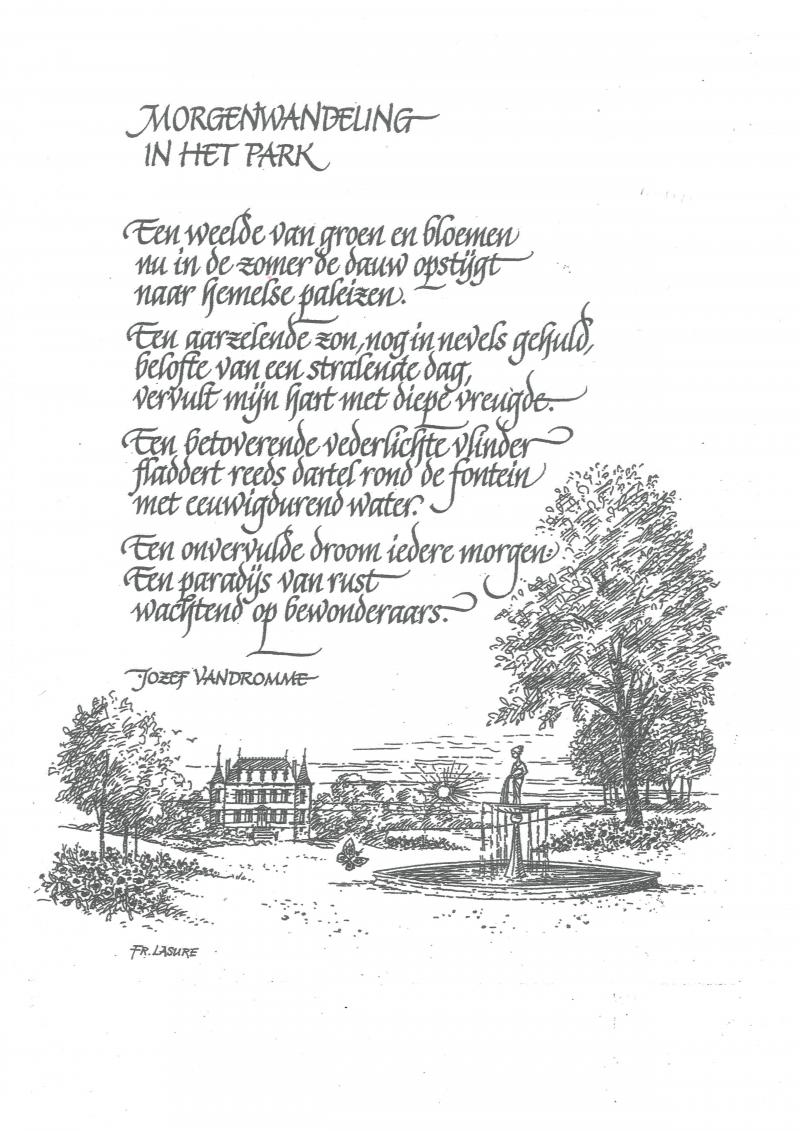 MORGENWANDELING
IN HET PARK
Een weelde van groen en bloemen
nu in de zomer de dauw opstijgt
naar hemelse paleizen.
Een aarzelende zon, nog in nevels gehuld,
belofte van een stralende dag,
vervult mijn hart met diepe vreugde.
Een betoverende vederlichte vlinder
fladdert reeds dartel rond de fontein
met eeuwigdurend water.
Een onvervulde droom iedere morgen:
Een paradijs van rust
wachtend op bewonderaars.
JOZEF VANDROMME
FR. LASURE